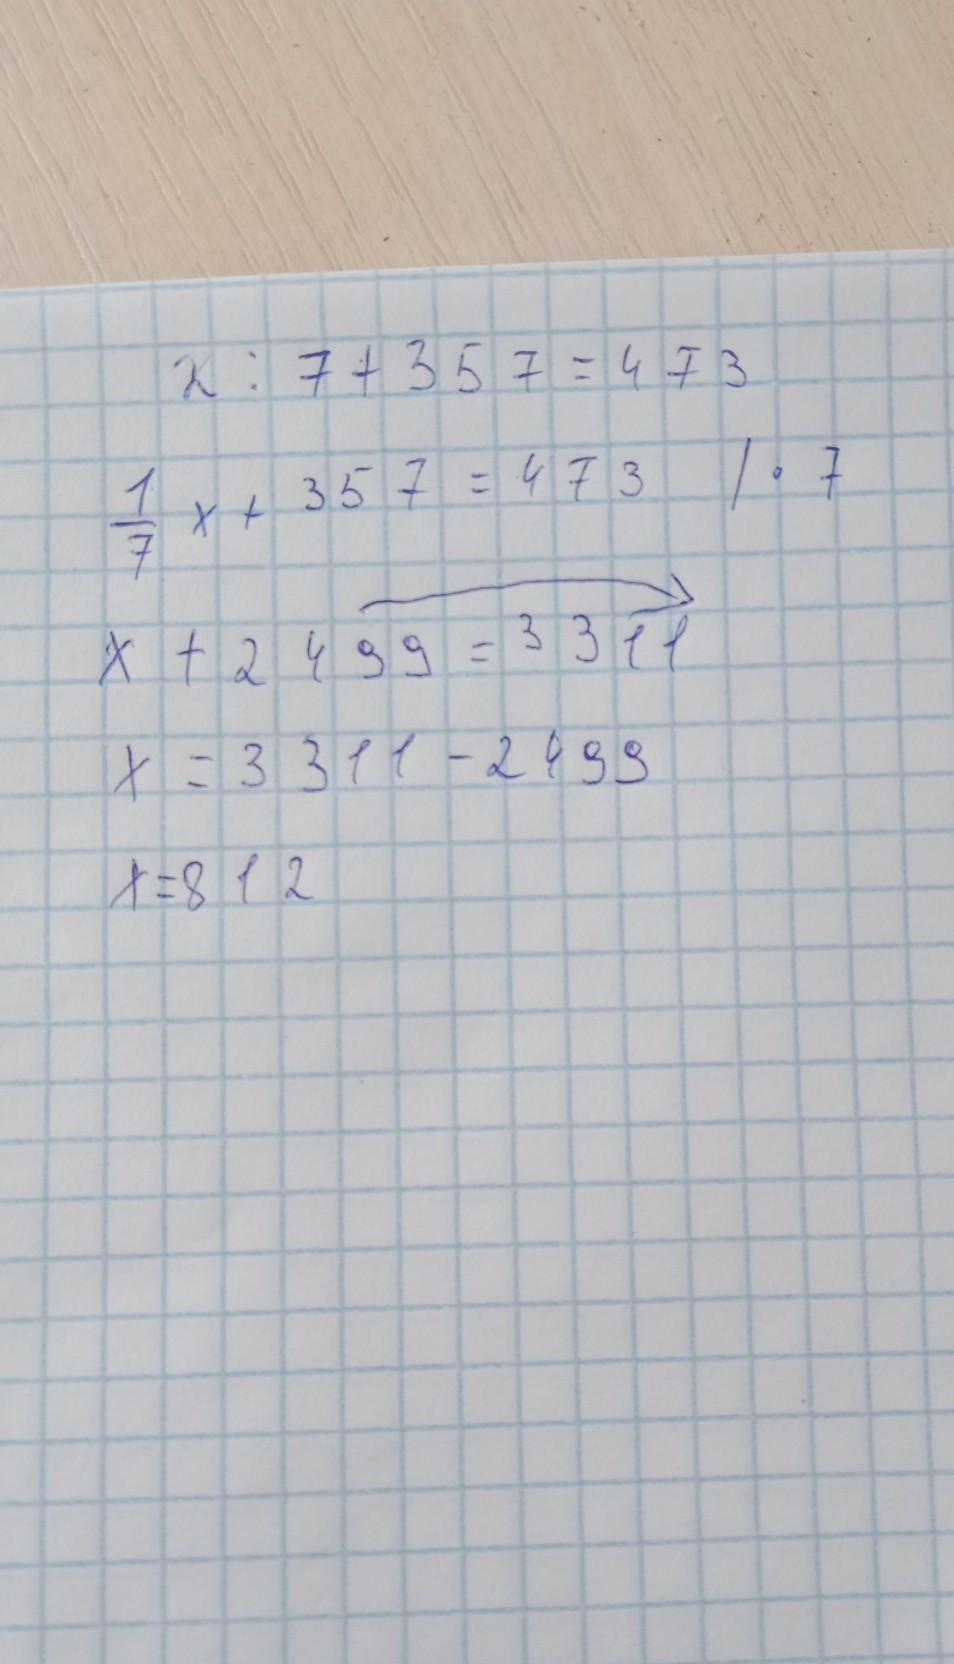 x : 7 + 357 = 473
1/7 x + 357 = 473 / · 7
x + 2499 = 3311
x = 3311 - 2499
x = 812